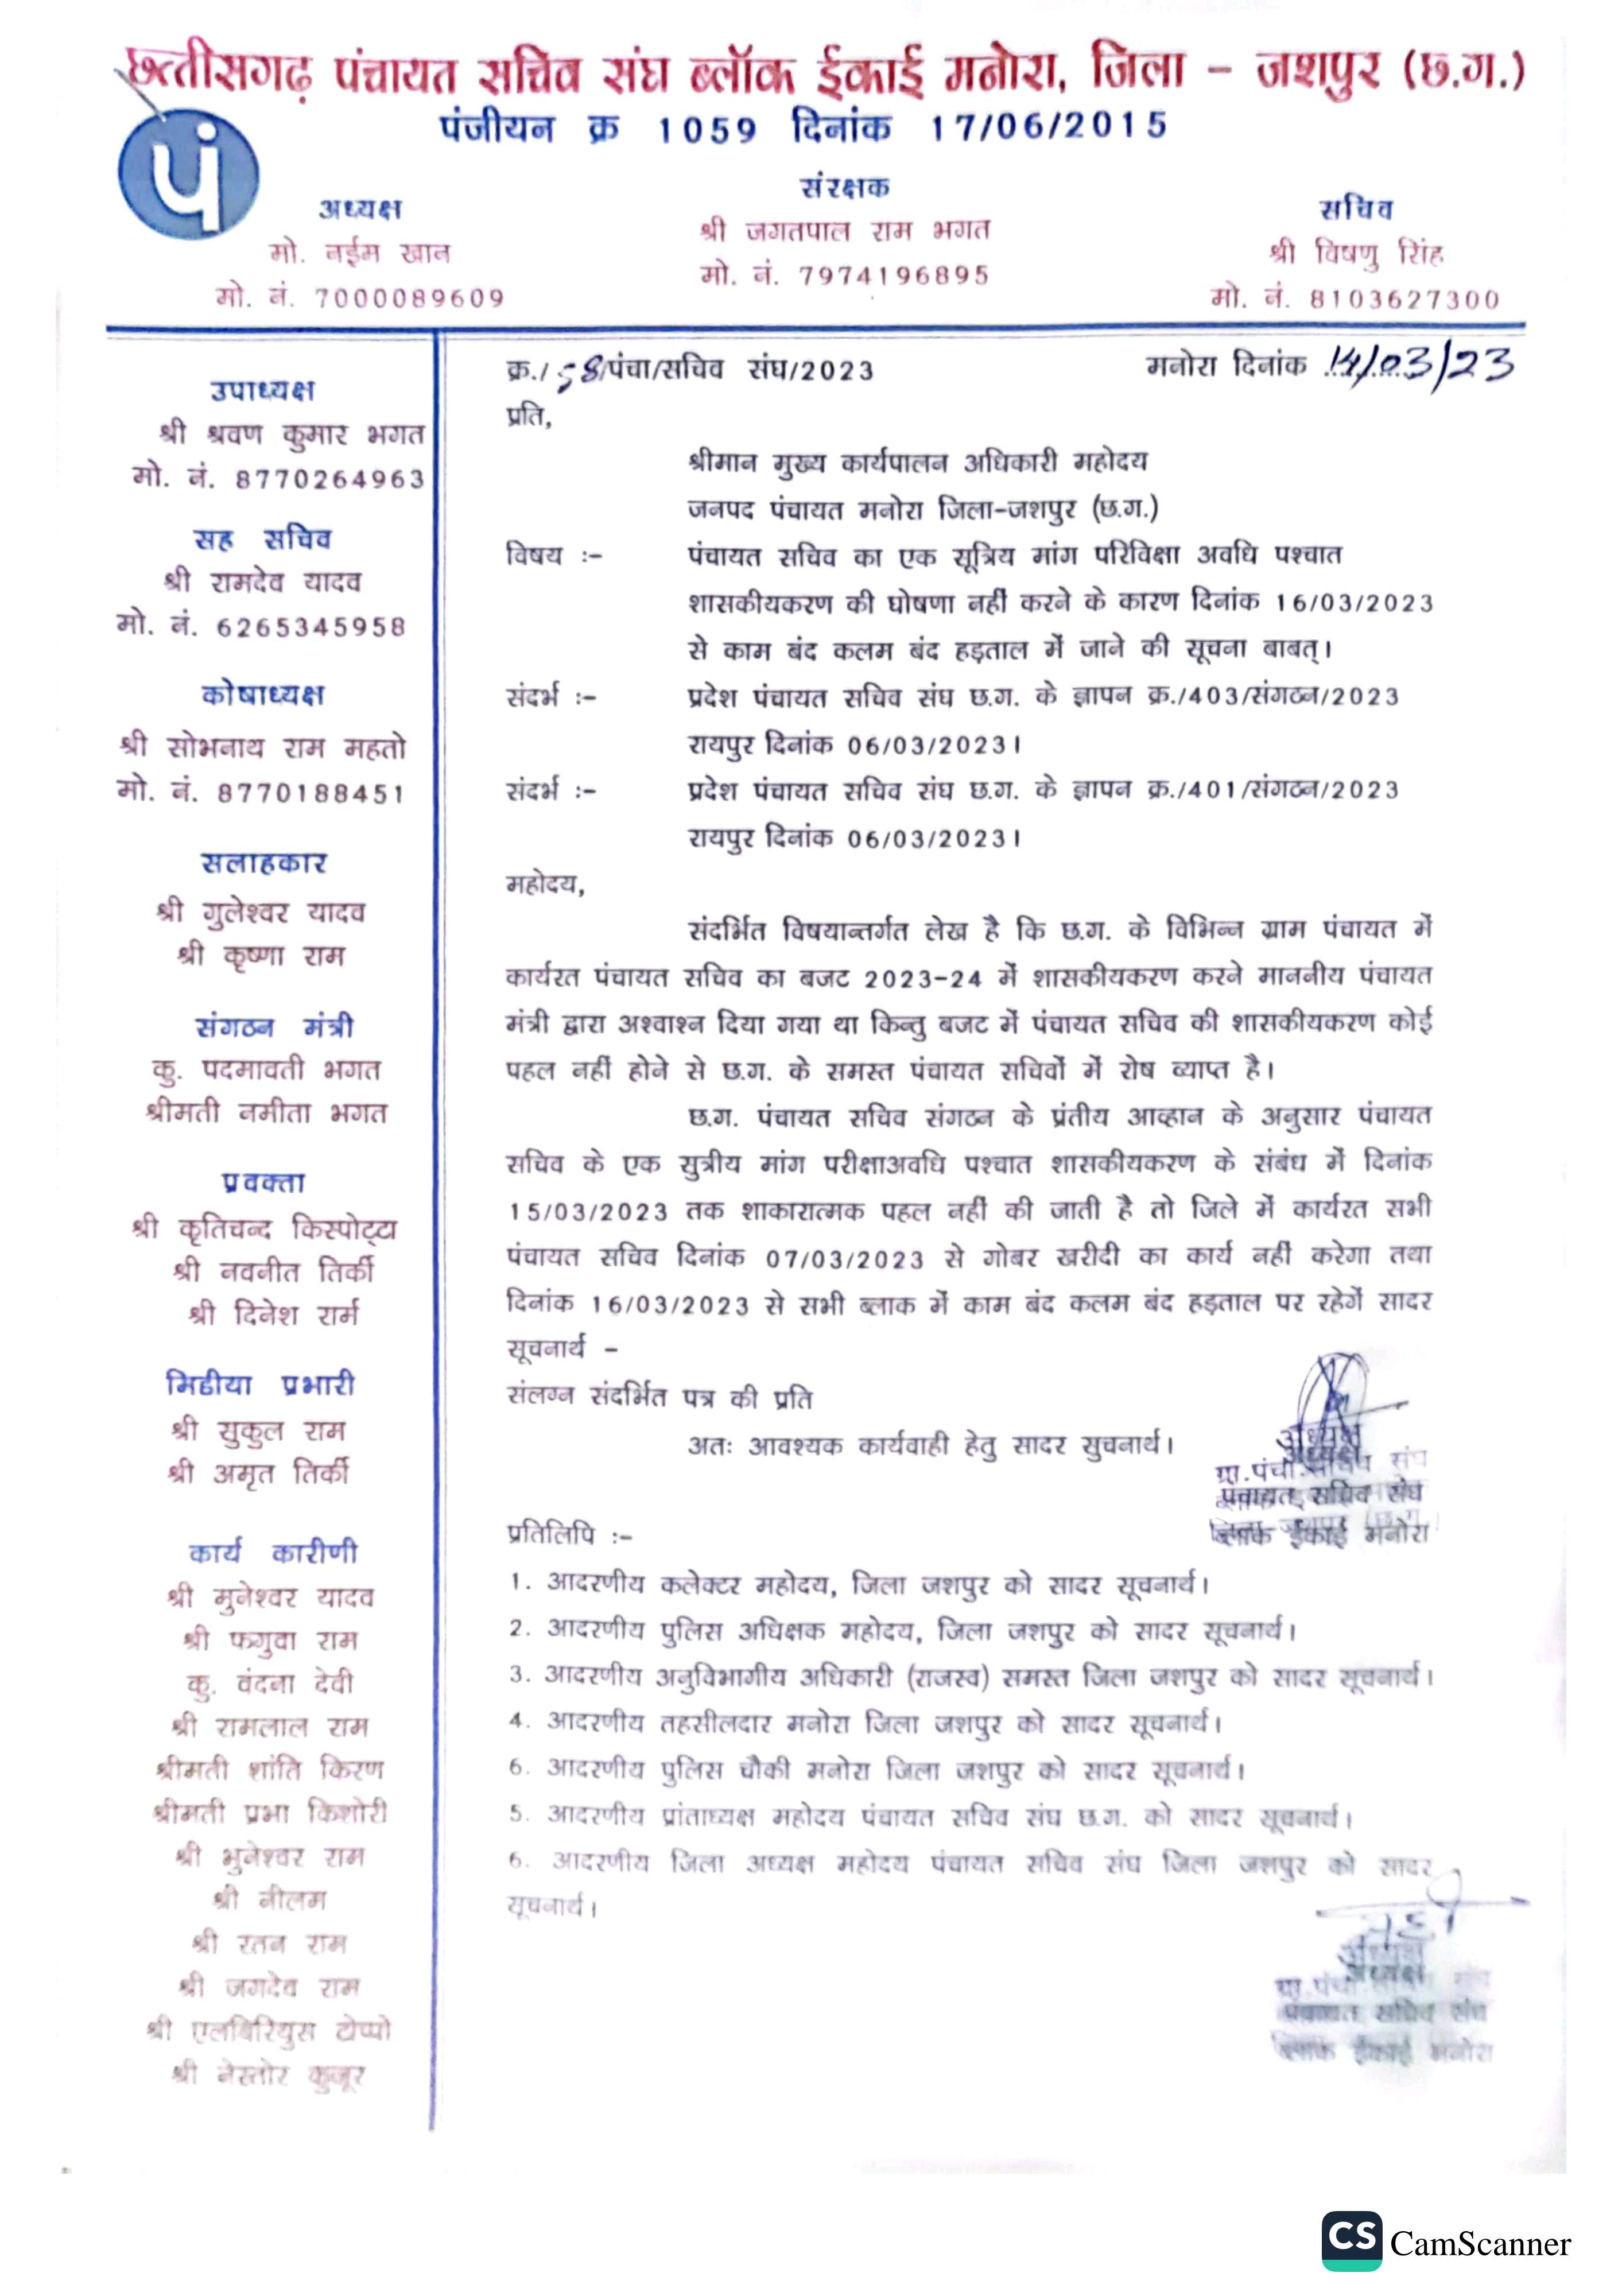 छत्तीसगढ़ पंचायत सचिव संघ ब्लॉक ईकाई मनोरा, जिला – जशपुर (छ.ग.)
पंजीयन क्र 1059 दिनांक 17/06/2015
पं
अध्यक्ष
मो. नईम खान
मो. नं. 7000089609
संरक्षक
श्री जगतपाल राम भगत
मो. नं. 7974196895
सचिव
श्री विषणु सिंह
मो. नं. 8103627300
उपाध्यक्ष
श्री श्रवण कुमार भगत
मो. नं. 8770264963
सह सचिव
श्री रामदेव यादव
मो. नं. 6265345958
कोषाध्यक्ष
श्री सोभनाथ राम महतो
मो. नं. 8770188451
सलाहकार
श्री गुलेश्वर यादव
श्री कृष्णा राम
संगठन मंत्री
कु. पदमावती भगत
श्रीमती नमीता भगत
प्रवक्ता
श्री कृतिचन्द किस्पोट्टा
श्री नवनीत तिर्की
श्री दिनेश रार्म
मिडीया प्रभारी
श्री सुकुल राम
श्री अमृत तिर्की
कार्य कारीणी
श्री मुनेश्वर यादव
श्री फगुवा राम
कु. वंदना देवी
श्री रामलाल राम
श्रीमती शांति किरण
श्रीमती प्रभा किशोरी
श्री भुनेश्वर राम
श्री नीलम
श्री रतन राम
श्री जगदेव राम
श्री एलबिरियुस टोप्पो
श्री नेस्तोर कुजूर
क्र./58/पंचा/सचिव संघ/2023
मनोरा दिनांक 14/03/23
प्रति,
श्रीमान मुख्य कार्यपालन अधिकारी महोदय
जनपद पंचायत मनोरा जिला-जशपुर (छ.ग.)
विषय :- पंचायत सचिव का एक सूत्रिय मांग परिविक्षा अवधि पश्चात
शासकीयकरण की घोषणा नहीं करने के कारण दिनांक 16/03/2023
से काम बंद कलम बंद हड़ताल में जाने की सूचना बाबत्।
संदर्भ :- प्रदेश पंचायत सचिव संघ छ.ग. के ज्ञापन क्र./403/संगठन/2023
रायपुर दिनांक 06/03/2023।
संदर्भ :- प्रदेश पंचायत सचिव संघ छ.ग. के ज्ञापन क्र./401/संगठन/2023
रायपुर दिनांक 06/03/2023।
महोदय,
संदर्भित विषयान्तर्गत लेख है कि छ.ग. के विभिन्न ग्राम पंचायत में
कार्यरत पंचायत सचिव का बजट 2023-24 में शासकीयकरण करने माननीय पंचायत
मंत्री द्वारा अश्वाश्न दिया गया था किन्तु बजट में पंचायत सचिव की शासकीयकरण कोई
पहल नहीं होने से छ.ग. के समस्त पंचायत सचिवों में रोष व्याप्त है।
छ.ग. पंचायत सचिव संगठन के प्रंतीय आव्हान के अनुसार पंचायत
सचिव के एक सुत्रीय मांग परीक्षाअवधि पश्चात शासकीयकरण के संबंध में दिनांक
15/03/2023 तक शाकारात्मक पहल नहीं की जाती है तो जिले में कार्यरत सभी
पंचायत सचिव दिनांक 07/03/2023 से गोबर खरीदी का कार्य नहीं करेगा तथा
दिनांक 16/03/2023 से सभी ब्लाक में काम बंद कलम बंद हड़ताल पर रहेगें सादर
सूचनार्थ –
संलग्न संदर्भित पत्र की प्रति
अतः आवश्यक कार्यवाही हेतु सादर सुचनार्थ।
अध्यक्ष
अध्यक्ष
ग्रा.पंचा.सचिव संघ
पंचायत सचिव संघ
ब्लाक ईकाई मनोरा
प्रतिलिपि :-
1. आदरणीय कलेक्टर महोदय, जिला जशपुर को सादर सूचनार्थ।
2. आदरणीय पुलिस अधिक्षक महोदय, जिला जशपुर को सादर सूचनार्थ।
3. आदरणीय अनुविभागीय अधिकारी (राजस्व) समस्त जिला जशपुर को सादर सूचनार्थ।
4. आदरणीय तहसीलदार मनोरा जिला जशपुर को सादर सूचनार्थ।
6. आदरणीय पुलिस चौकी मनोरा जिला जशपुर को सादर सूचनार्थ।
5. आदरणीय प्रांताध्यक्ष महोदय पंचायत सचिव संघ छ.ग. को सादर सूचनार्थ।
6. आदरणीय जिला अध्यक्ष महोदय पंचायत सचिव संघ जिला जशपुर को सादर
सूचनार्थ।
अध्यक्ष
अध्यक्ष
पंचायत सचिव संघ
ब्लाक ईकाई मनोरा
CS CamScanner